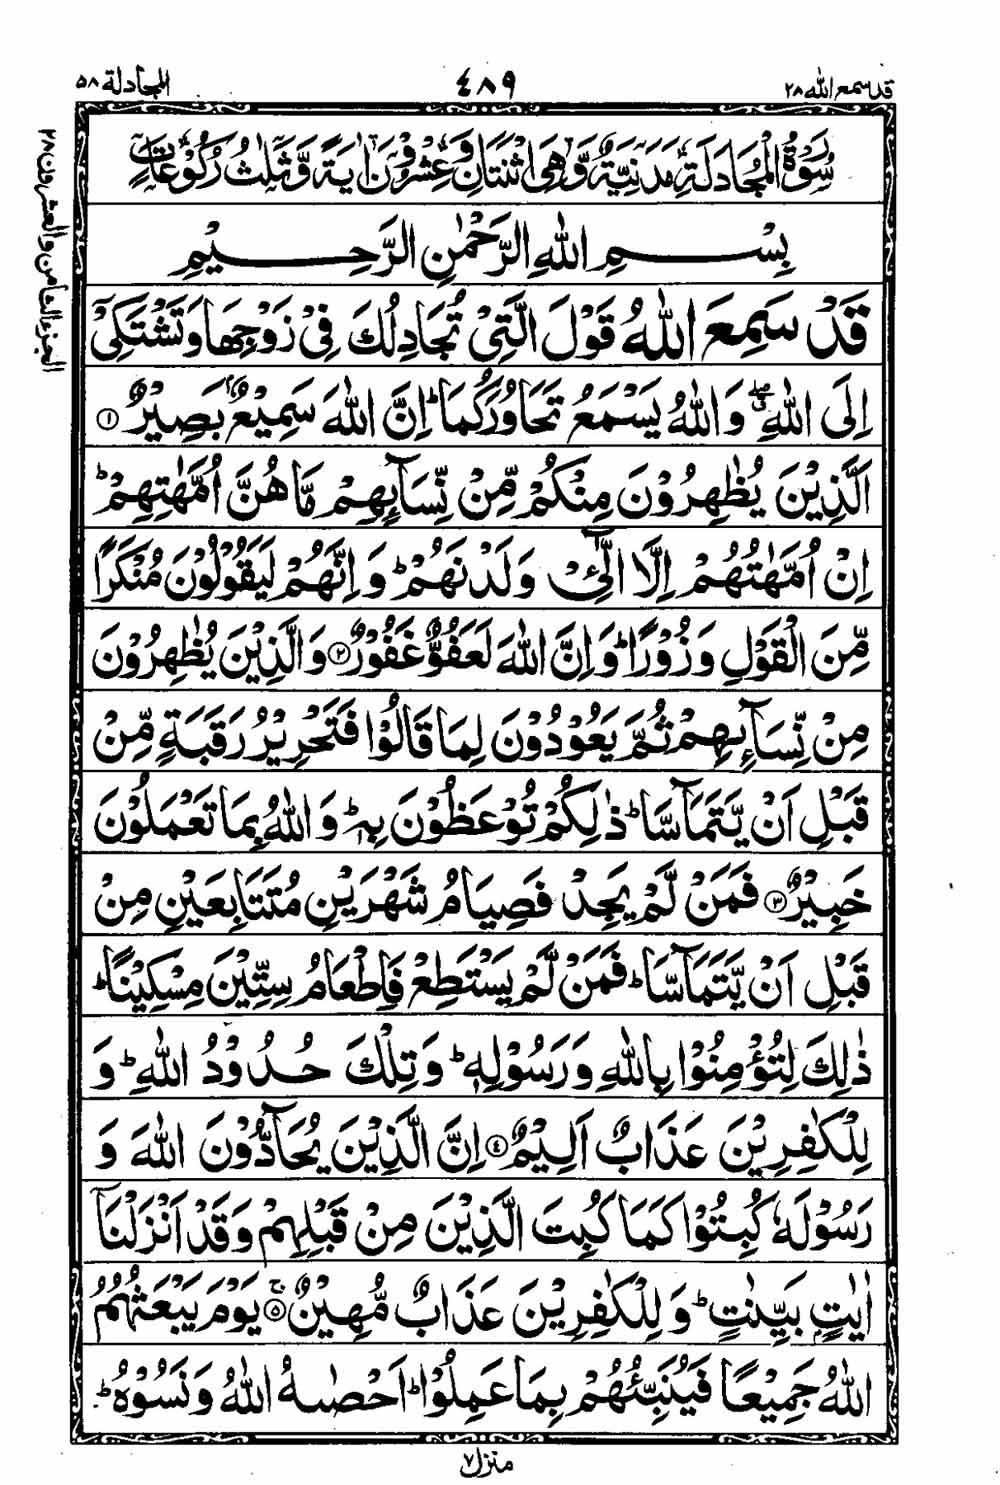 قد سمع الله ٢٨
٤٨٩
المجادلة ٥٨
سُوْرَةُ الْمُجَادَلَةِ مَدَنِيَّةٌ وَّهِىَ اثْنَتَانِ وَعِشْرُوْنَ اٰيَةً وَّثَلٰثُ رُكُوْعَاتٍ
بِسْمِ اللّٰهِ الرَّحْمٰنِ الرَّحِيْمِ
قَدْ سَمِعَ اللّٰهُ قَوْلَ الَّتِىْ تُجَادِلُكَ فِىْ زَوْجِهَا وَتَشْتَكِىْٓ
اِلَى اللّٰهِ ۖۗ وَاللّٰهُ يَسْمَعُ تَحَاوُرَكُمَا ؕ اِنَّ اللّٰهَ سَمِيْعٌۢ بَصِيْرٌ ①
اَلَّذِيْنَ يُظٰهِرُوْنَ مِنْكُمْ مِّنْ نِّسَآئِهِمْ مَّا هُنَّ اُمَّهٰتِهِمْ ؕ
اِنْ اُمَّهٰتُهُمْ اِلَّا الّٰٓئِىْ وَلَدْنَهُمْ ؕ وَاِنَّهُمْ لَيَقُوْلُوْنَ مُنْكَرًا
مِّنَ الْقَوْلِ وَزُوْرًا ؕ وَاِنَّ اللّٰهَ لَعَفُوٌّ غَفُوْرٌ ② وَالَّذِيْنَ يُظٰهِرُوْنَ
مِنْ نِّسَآئِهِمْ ثُمَّ يَعُوْدُوْنَ لِمَا قَالُوْا فَتَحْرِيْرُ رَقَبَةٍ مِّنْ
قَبْلِ اَنْ يَّتَمَآسَّا ؕ ذٰلِكُمْ تُوْعَظُوْنَ بِهٖ ؕ وَاللّٰهُ بِمَا تَعْمَلُوْنَ
خَبِيْرٌ ③ فَمَنْ لَّمْ يَجِدْ فَصِيَامُ شَهْرَيْنِ مُتَتَابِعَيْنِ مِنْ
قَبْلِ اَنْ يَّتَمَآسَّا ؕ فَمَنْ لَّمْ يَسْتَطِعْ فَاِطْعَامُ سِتِّيْنَ مِسْكِيْنًا ؕ
ذٰلِكَ لِتُؤْمِنُوْا بِاللّٰهِ وَرَسُوْلِهٖ ؕ وَتِلْكَ حُدُوْدُ اللّٰهِ ؕ وَ
لِلْكٰفِرِيْنَ عَذَابٌ اَلِيْمٌ ④ اِنَّ الَّذِيْنَ يُحَآدُّوْنَ اللّٰهَ وَ
رَسُوْلَهٗ كُبِتُوْا كَمَا كُبِتَ الَّذِيْنَ مِنْ قَبْلِهِمْ وَقَدْ اَنْزَلْنَآ
اٰيٰتٍۢ بَيِّنٰتٍ ؕ وَلِلْكٰفِرِيْنَ عَذَابٌ مُّهِيْنٌ ⑤ۚ يَوْمَ يَبْعَثُهُمُ
اللّٰهُ جَمِيْعًا فَيُنَبِّئُهُمْ بِمَا عَمِلُوْا ؕ اَحْصٰىهُ اللّٰهُ وَنَسُوْهُ ؕ
الجزء الثامن والعشرون ٢٨
منزل ٧